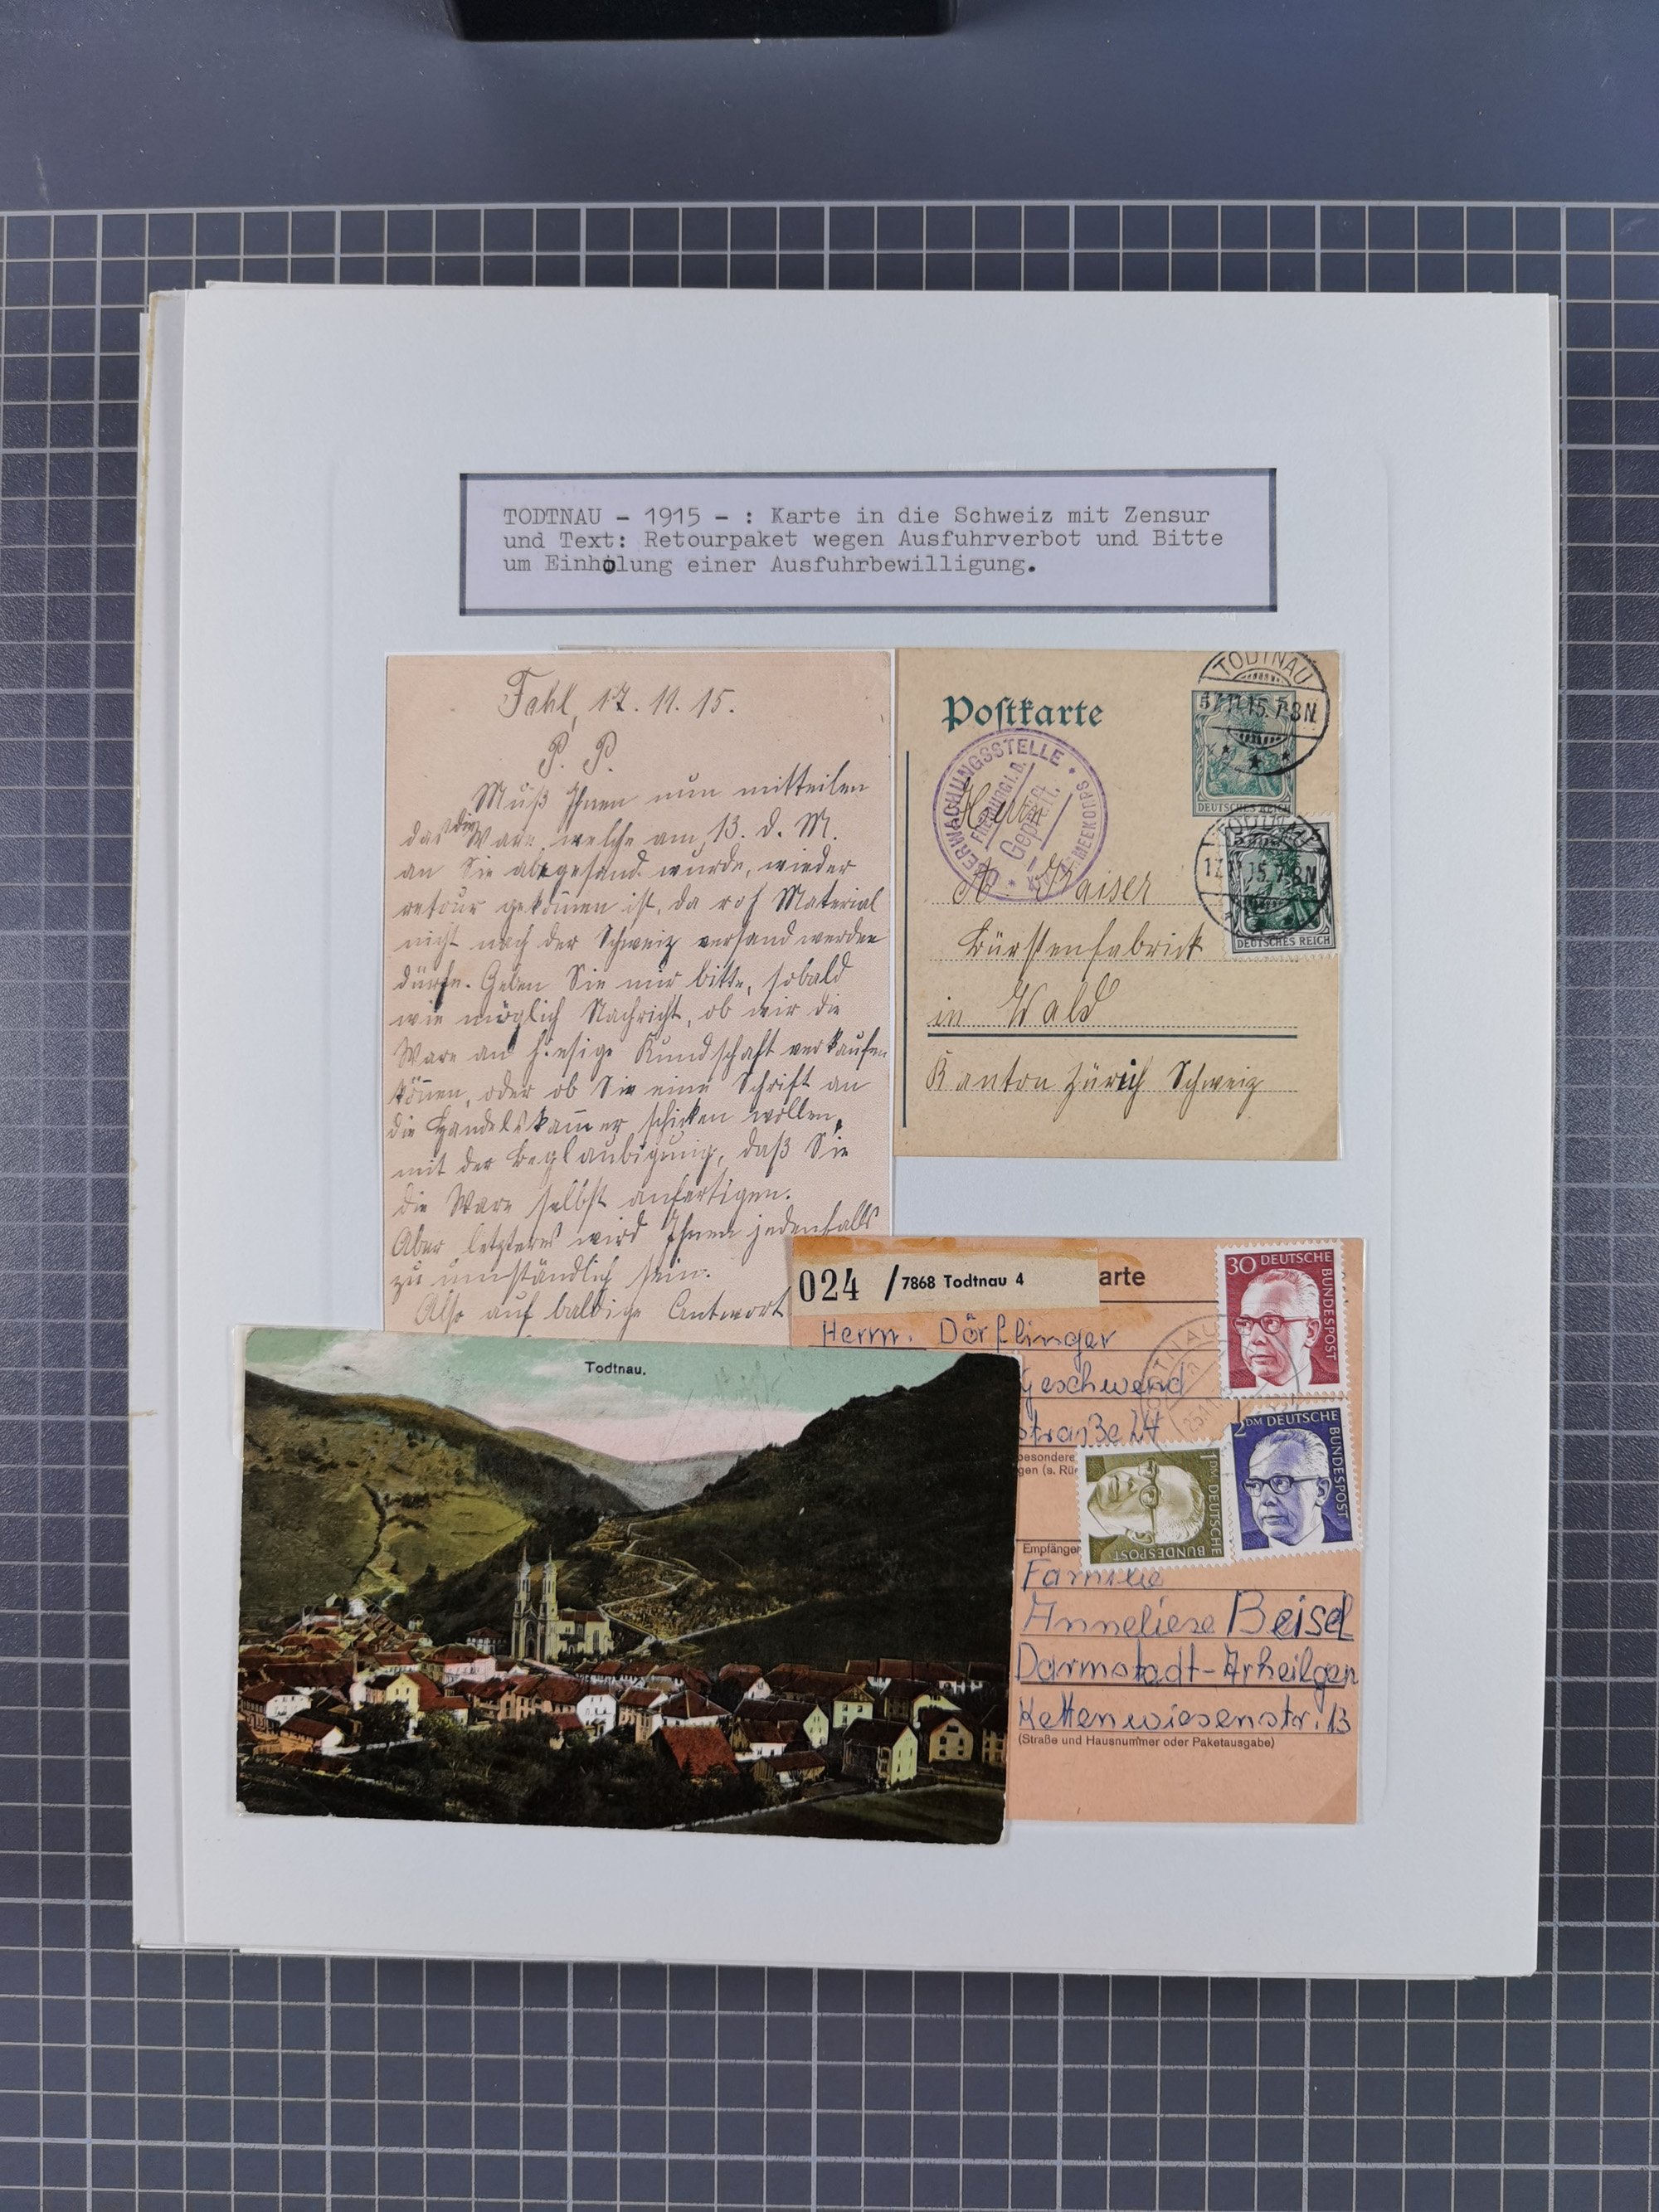 TODTNAU - 1915 - : Karte in die Schweiz mit Zensur
und Text: Retourpaket wegen Ausfuhrverbot und Bitte
um Einholung einer Ausfuhrbewilligung.
Fahl, 17. 11. 15.
P. P.
Muß Ihnen nun mitteilen
das die Ware, welche am 13. d. M.
an Sie abgesand wurde, wieder
retour gekom̄en ist, da roh Material
nicht nach der Schweiz versand werden
dürfe. Geben Sie mir bitte, sobald
wie möglich Nachricht, ob wir die
Ware an hiesige Kundschaft verkaufen
kön̄en, oder ob Sie eine Schrift an
die Handelskam̄er schicken wollen,
mit der Beglaubigung, daß Sie
die Ware selbst anfertigen.
Aber letzteres wird Ihnen jedenfalls
zu umständlich sein.
Also auf baldige Antwort
Postkarte
TODTNAU
17.11.15.7-8N
DEUTSCHES REICH
ÜBERWACHUNGSSTELLE
FREIBURG I. B.
Geprüft.
ARMEEKORPS
Herrn
A. Kaiser
TODTNAU
17.11.15.7-8N
DEUTSCHES REICH
Bürstenfabrick
in Wald
Kanton Zürich Schweiz
024 / 7868 Todtnau 4
arte
30 DEUTSCHE BUNDESPOST
Herrn. Dörflinger
TODTNAU
Geschwend
straße 24
2 DM DEUTSCHE BUNDESPOST
1 DM DEUTSCHE BUNDESPOST
besondere
gen (s. Rü
Empfänger
Familie
Anneliese Beisel
Darmstadt-Arheilgen
Kettenwiesenstr. 13
(Straße und Hausnummer oder Paketausgabe)
Todtnau.